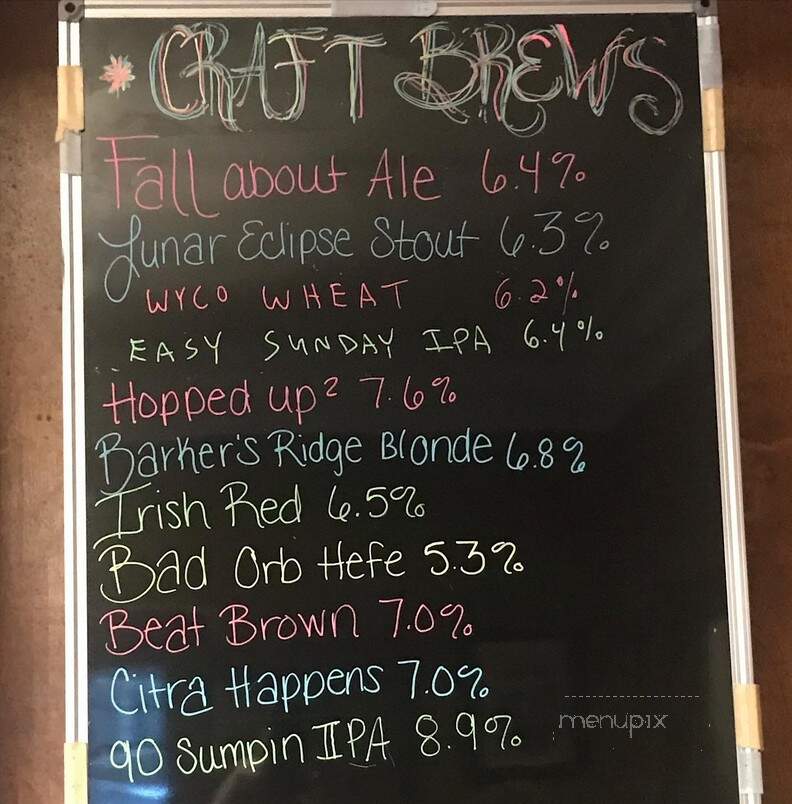 * CRAFT BREWS
Fall about Ale 6.4%
Lunar Eclipse Stout 6.3%
WYCO WHEAT 6.2%
EASY SUNDAY IPA 6.4%
Hopped up² 7.6%
Barker's Ridge Blonde 6.8%
Irish Red 6.5%
Bad Orb Hefe 5.3%
Beat Brown 7.0%
Citra Happens 7.0%
90 Sumpin IIPA 8.9%
menupix